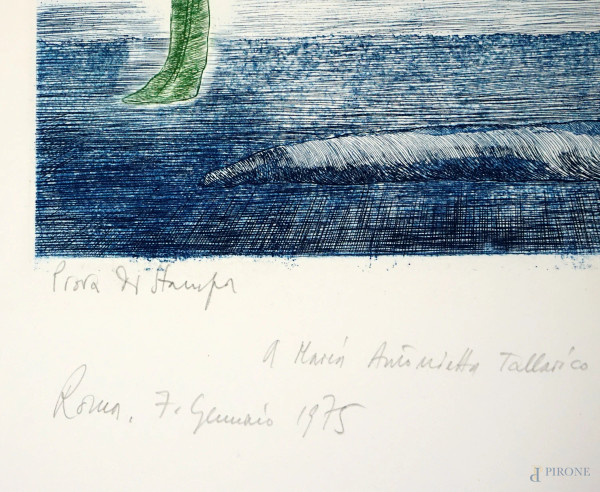 Prova di Stampa
A Maria Antonietta Tallarico
Roma, 7. Gennaio 1975
PIRONE